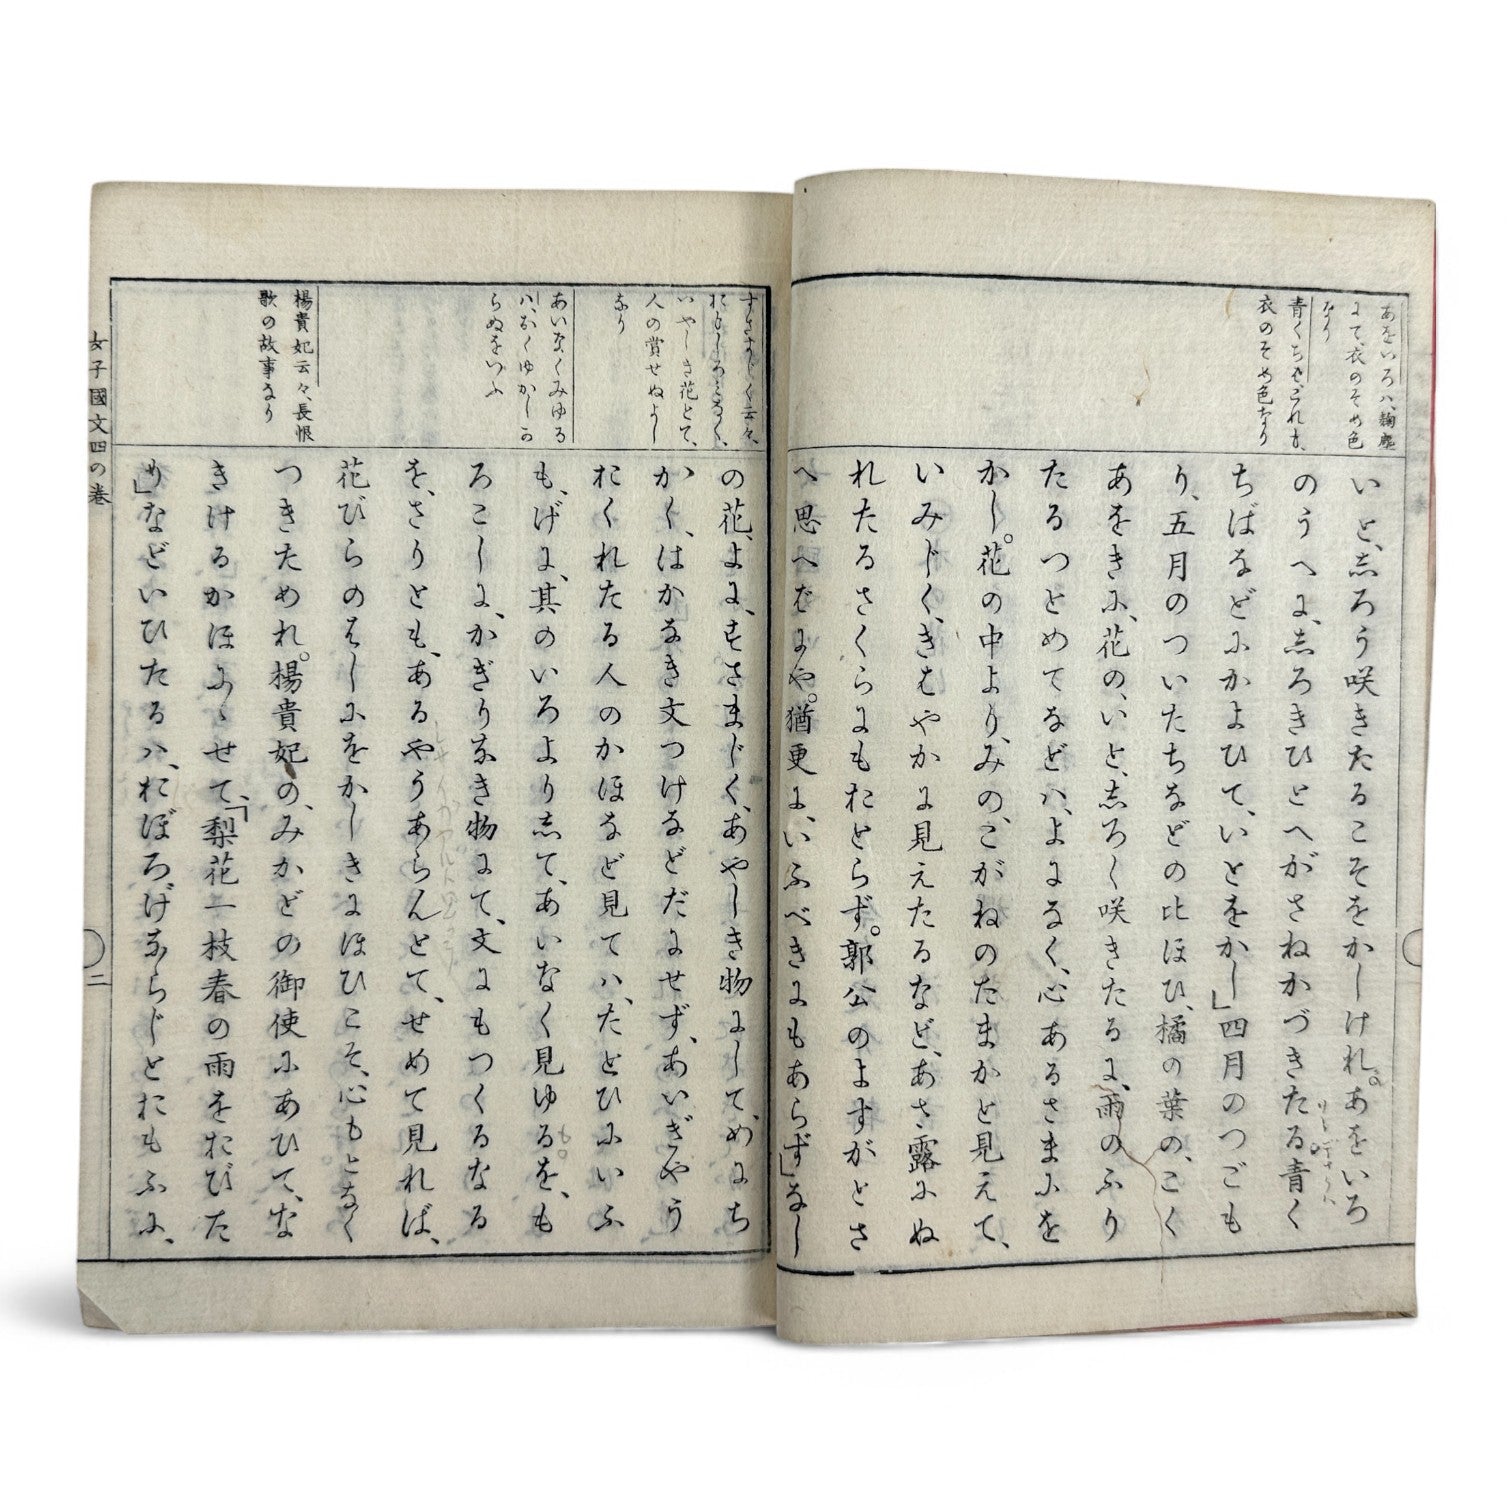 あをいろハ、麹塵
にて、衣のそめ色
なり
青くちばごれも、
衣のそめ色なり
いと、志ろう咲きたるこそをかしけれ。あをいろ
のうへに、志ろきひとへがさねかづきたる青く
ちばなどにかよひて、いとをかし」四月のつごも
り、五月のついたちなどの比ほひ、橘の葉の、こく
あをきに、花の、いと、志ろく咲きたるに、雨のふり
たるつとめてなどハ、よになく、心あるさまにを
かし。花の中より、みの、こがねのたまかと見えて、
いみじく、きはやかに見えたるなど、あさ露にぬ
れたるさくらにもおとらず。郭公のよすがとさ
へ思へばにや。猶更に、いふべきにもあらず」なし
すさまじく云々、
おもしろみなく、
いやしき花とて、
人の賞せぬよし
なり
あいなくみゆる
ハ、おくゆかしか
らぬをいふ
楊貴妃云々、長恨
歌の故事なり
の花、よに、すさまじく、あやしき物にして、めにち
かく、はかなき文つけなどだにせず、あいぎやう
おくれたる人のかほなど見てハ、たとひにいふ
も、げに、其のいろより志て、あいなく見ゆるを、も
ろこしに、かぎりなき物にて、文にもつくるなる
を、さりとも、あるやうあらんとて、せめて見れば、
花びらのはしにをかしきにほひこそ、心もとなく
つきためれ。楊貴妃の、みかどの御使にあひて、な
きけるかほにゝせて、「梨花一枝春の雨をおびた
り」などいひたるハ、おぼろげならじとおもふに、
女子國文四の巻
二